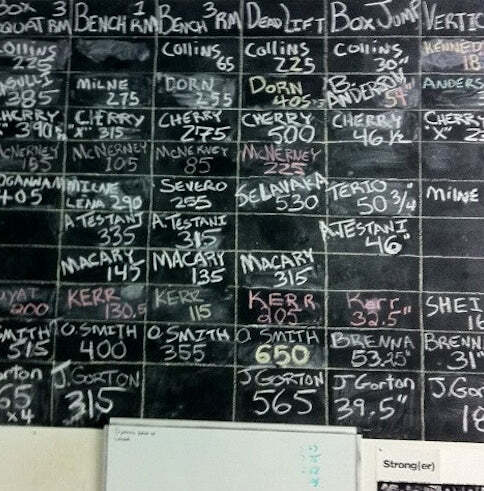 BOX 3 BENCH 1 RM BENCH 3 RM DEADLIFT BOX JUMP VERTIC
SQUAT RM
COLLINS COLLINS COLLINS COLLINS KENNED
225 65 225 30" 18
MILNE DORN DORN B. ANDERSON ANDERS
385 275 255 405 54"
CHERRY CHERRY CHERRY CHERRY CHERRY CHERRY
390 "X" 315 275 500 46 1/2 "X"
MCNERNEY MCNERNEY MCNERNEY MCNERNEY
155 105 85 225
MILNE SEVERO SELAVAKA TERIO MILNE
405 LENA 290 255 530 50 3/4
A.TESTANI A.TESTANI A.TESTANI
335 315 46"
MACARY MACARY MACARY
145 135 315
KERR KERR KERR Kerr SHEI
200 130.5 115 205 32.5" 16
SMITH O.SMITH O.SMITH O.SMITH BRENNA BRENN
515 400 355 650 53.25" 31"
orton J.GORTON J GORTON J Gorton J.Gor
65 315 565 39.5" 18
x4
Strong(er)